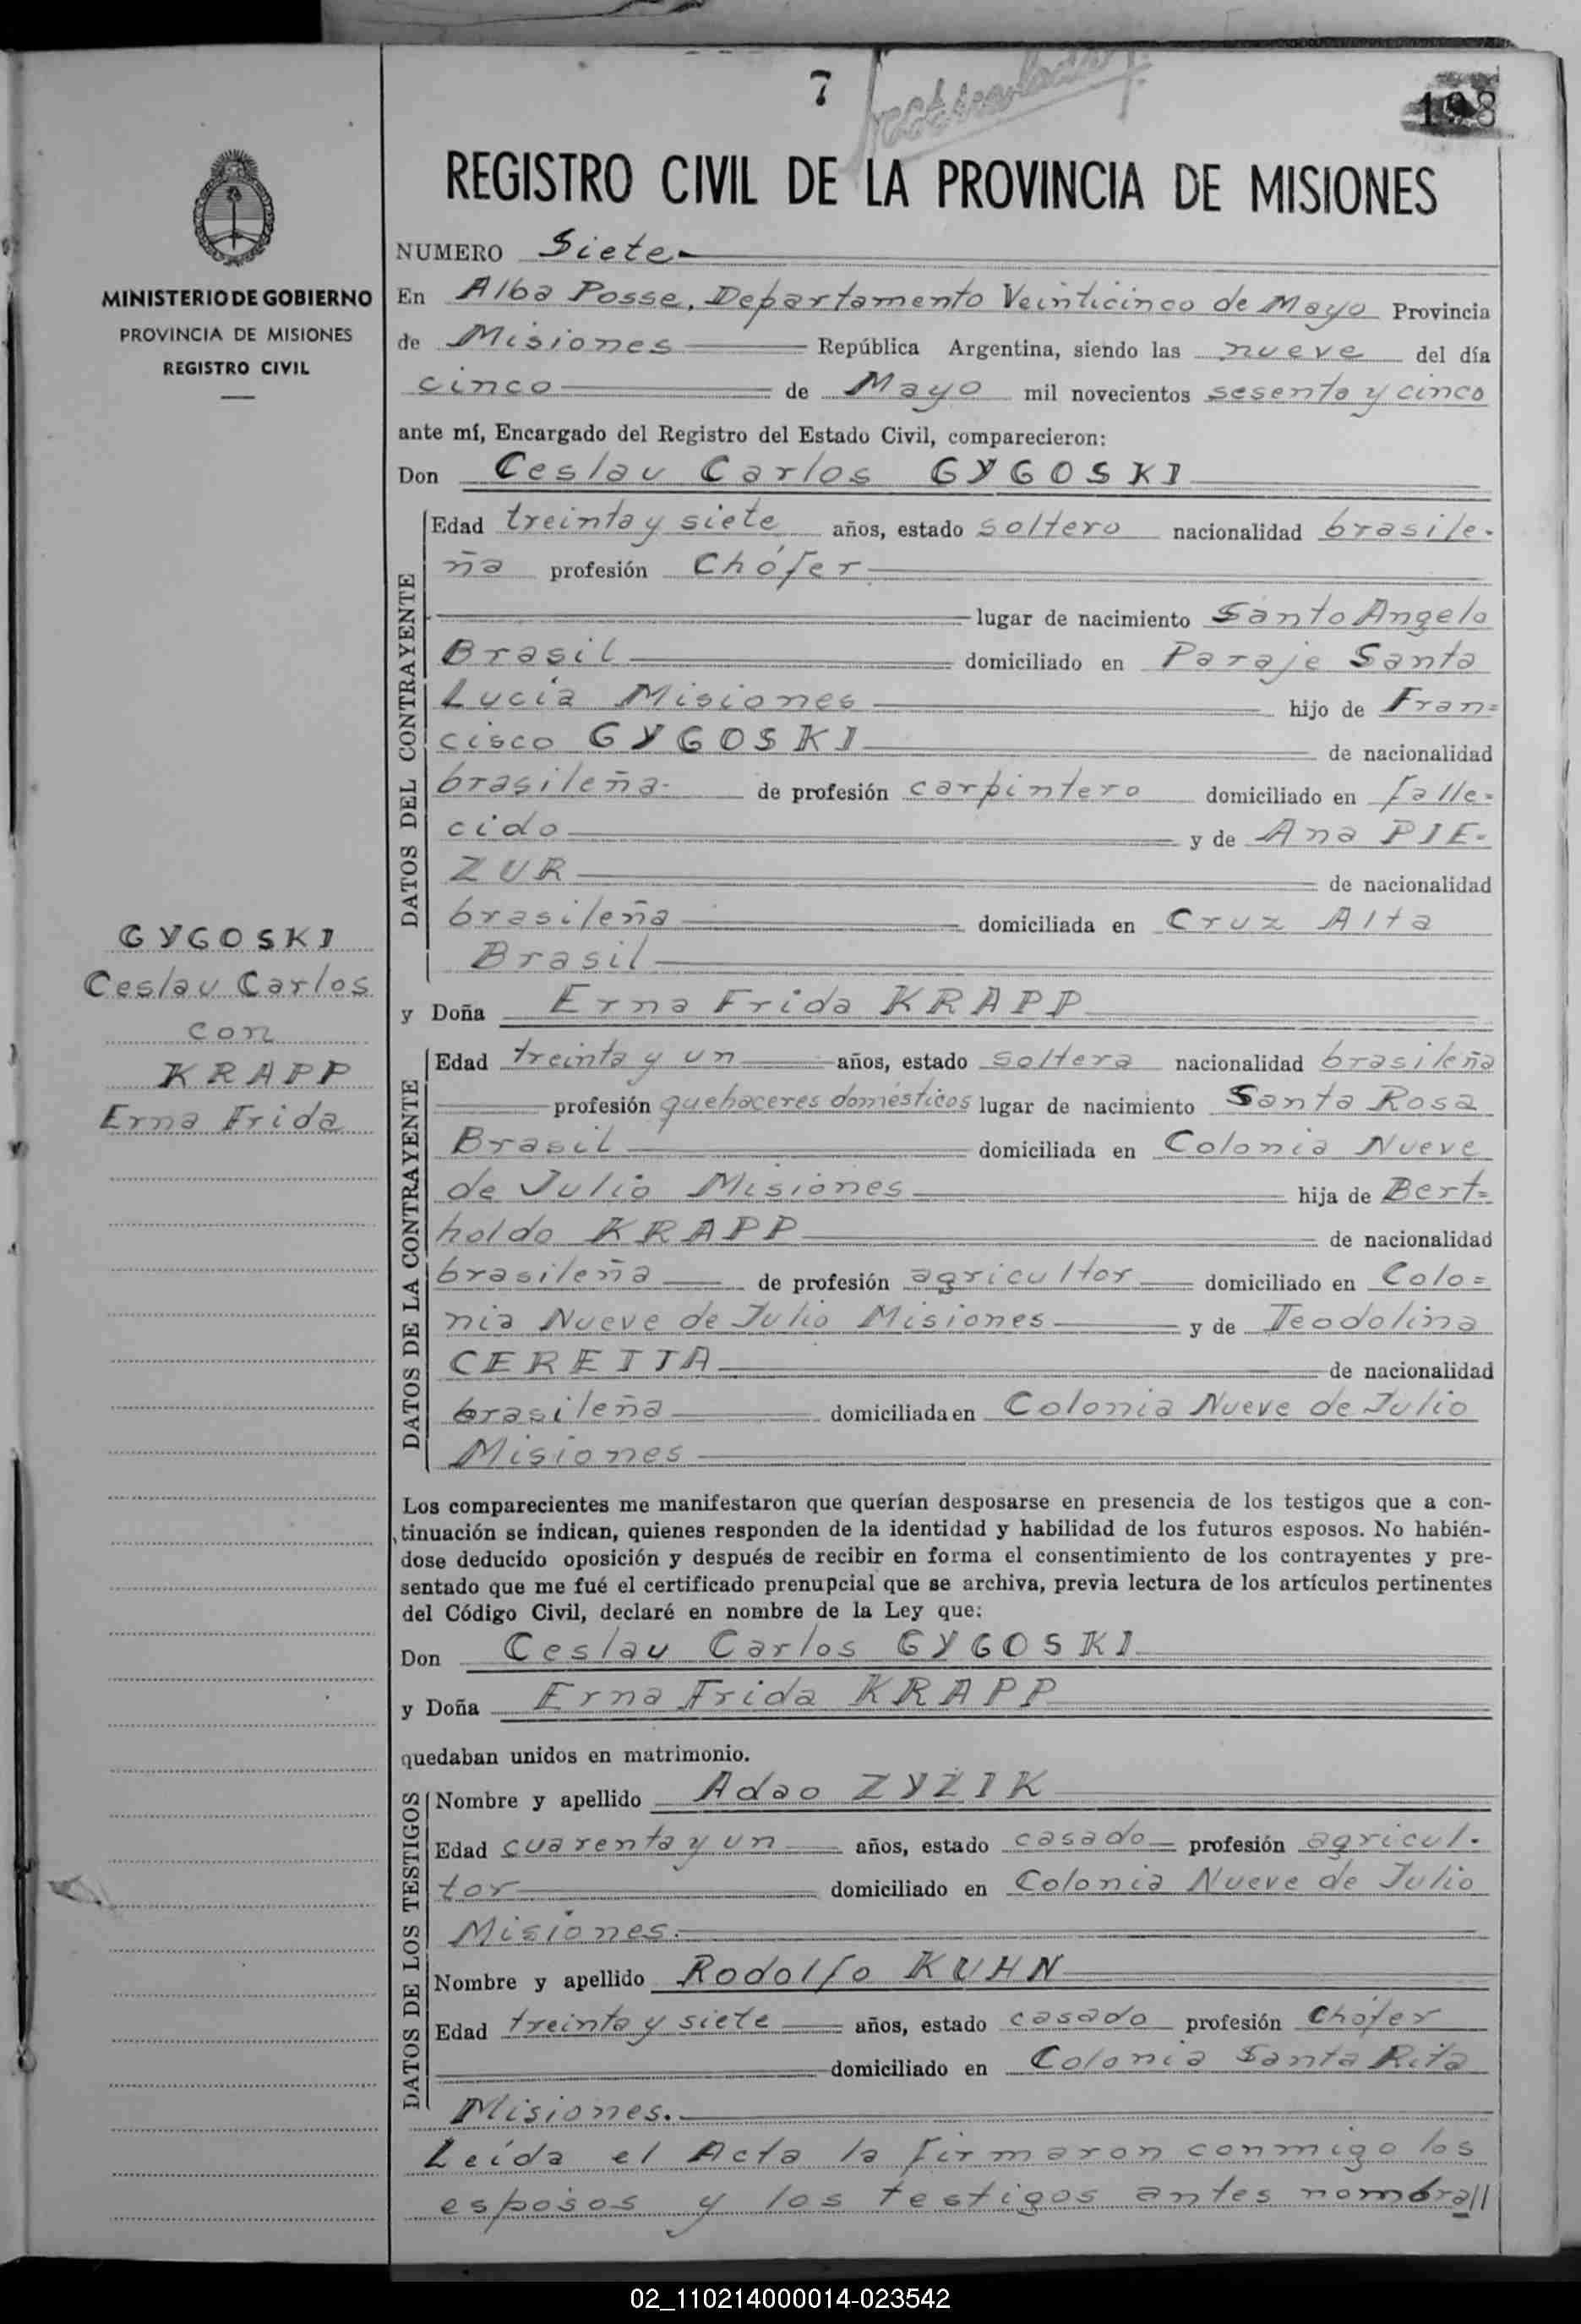 7
198
REGISTRO CIVIL DE LA PROVINCIA DE MISIONES
MINISTERIO DE GOBIERNO
PROVINCIA DE MISIONES
REGISTRO CIVIL
NUMERO Siete
En Alba Posse, Departamento Veinticinco de Mayo Provincia
de Misiones República Argentina, siendo las nueve del día
cinco de Mayo mil novecientos sesenta y cinco
ante mí, Encargado del Registro del Estado Civil, comparecieron:
Don Ceslau Carlos GYGOSKI
DATOS DEL CONTRAYENTE
Edad treinta y siete años, estado soltero nacionalidad brasile-
ña profesión Chófer
lugar de nacimiento Santo Angelo
Brasil domiciliado en Paraje Santa
Lucía Misiones hijo de Fran=
cisco GYGOSKI de nacionalidad
brasileña- de profesión carpintero domiciliado en falle=
cido y de Ana PIE-
ZUR de nacionalidad
brasileña domiciliada en Cruz Alta
Brasil
GYGOSKI
Ceslau Carlos
con
KRAPP
Erna Frida
y Doña Erna Frida KRAPP
DATOS DE LA CONTRAYENTE
Edad treinta y un años, estado soltera nacionalidad brasileña
profesión quehaceres domésticos lugar de nacimiento Santa Rosa
Brasil domiciliada en Colonia Nueve
de Julio Misiones hija de Bert=
holdo KRAPP de nacionalidad
brasileña de profesión agricultor domiciliado en Colo=
nia Nueve de Julio Misiones y de Teodolina
CERETTA de nacionalidad
brasileña domiciliada en Colonia Nueve de Julio
Misiones
Los comparecientes me manifestaron que querían desposarse en presencia de los testigos que a con-
tinuación se indican, quienes responden de la identidad y habilidad de los futuros esposos. No habién-
dose deducido oposición y después de recibir en forma el consentimiento de los contrayentes y pre-
sentado que me fué el certificado prenupcial que se archiva, previa lectura de los artículos pertinentes
del Código Civil, declaré en nombre de la Ley que:
Don Ceslau Carlos GYGOSKI
y Doña Erna Frida KRAPP
quedaban unidos en matrimonio.
DATOS DE LOS TESTIGOS
Nombre y apellido Adao ZYZIK
Edad cuarenta y un años, estado casado profesión agricul-
tor domiciliado en Colonia Nueve de Julio
Misiones.
Nombre y apellido Rodolfo KUHN
Edad treinta y siete años, estado casado profesión Chófer
domiciliado en Colonia Santa Rita
Misiones.
Leída el Acta la firmaron conmigo los
esposos y los testigos antes nombra//
02_110214000014-023542